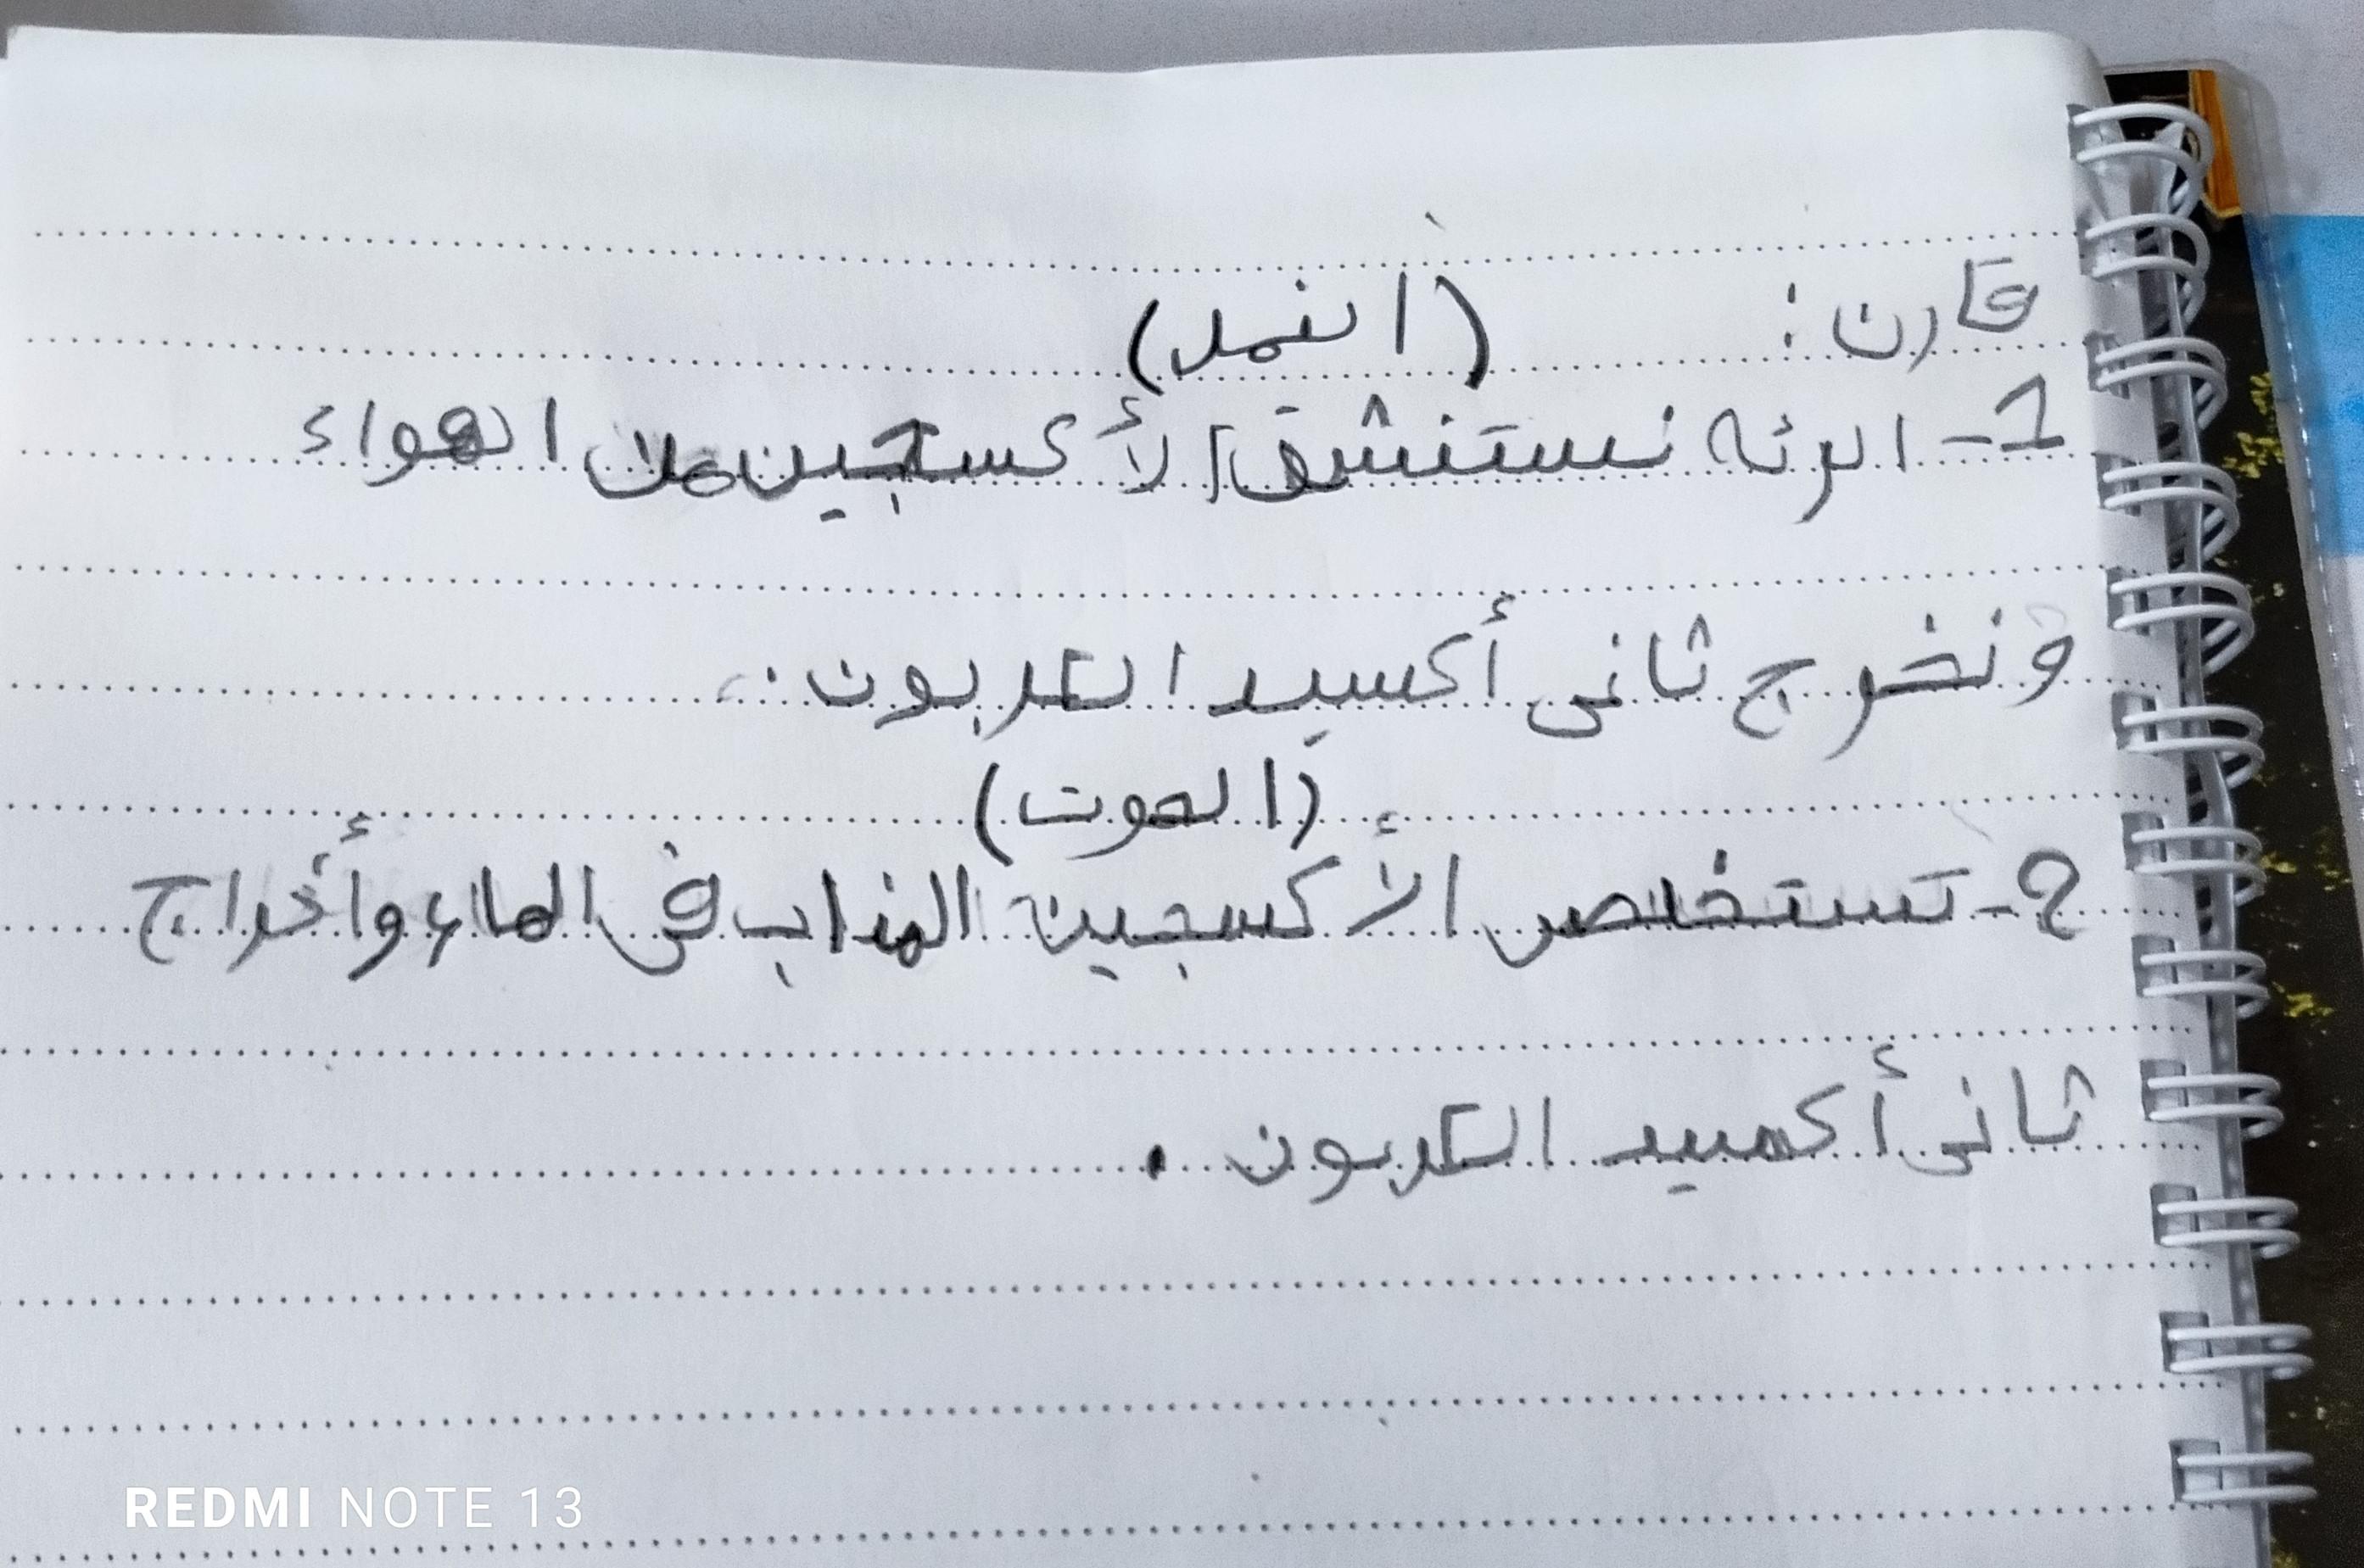 قارن : (النمل)
1- الرئه نستنشق الأكسجين من الهواء
و نخرج ثانى أكسيد الكربون .
(الحوت)
2- تستخلص الأكسجين المذاب فى الماء وأخراج
ثانى أكسيد الكربون .
REDMI NOTE 13